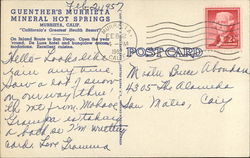 Feb. 2, 1957
GUENTHER'S MURRIETA
MINERAL HOT SPRINGS
MURRIETA, CALIF.
"California's Greatest Health Resort"
On Inland Route to San Diego. Open the year
round. De Luxe hotel and bungalow accom-
modations. Excellent cuisine.
POST CARD
Hello - Looks like
rain any time.
Saw a lot of snow
on our way thru
the mts from
Grandpa is taking
a bath so I'm writing
cards Love Gramma
Master Bruce
4305 The Alameda
San Mateo, Calif